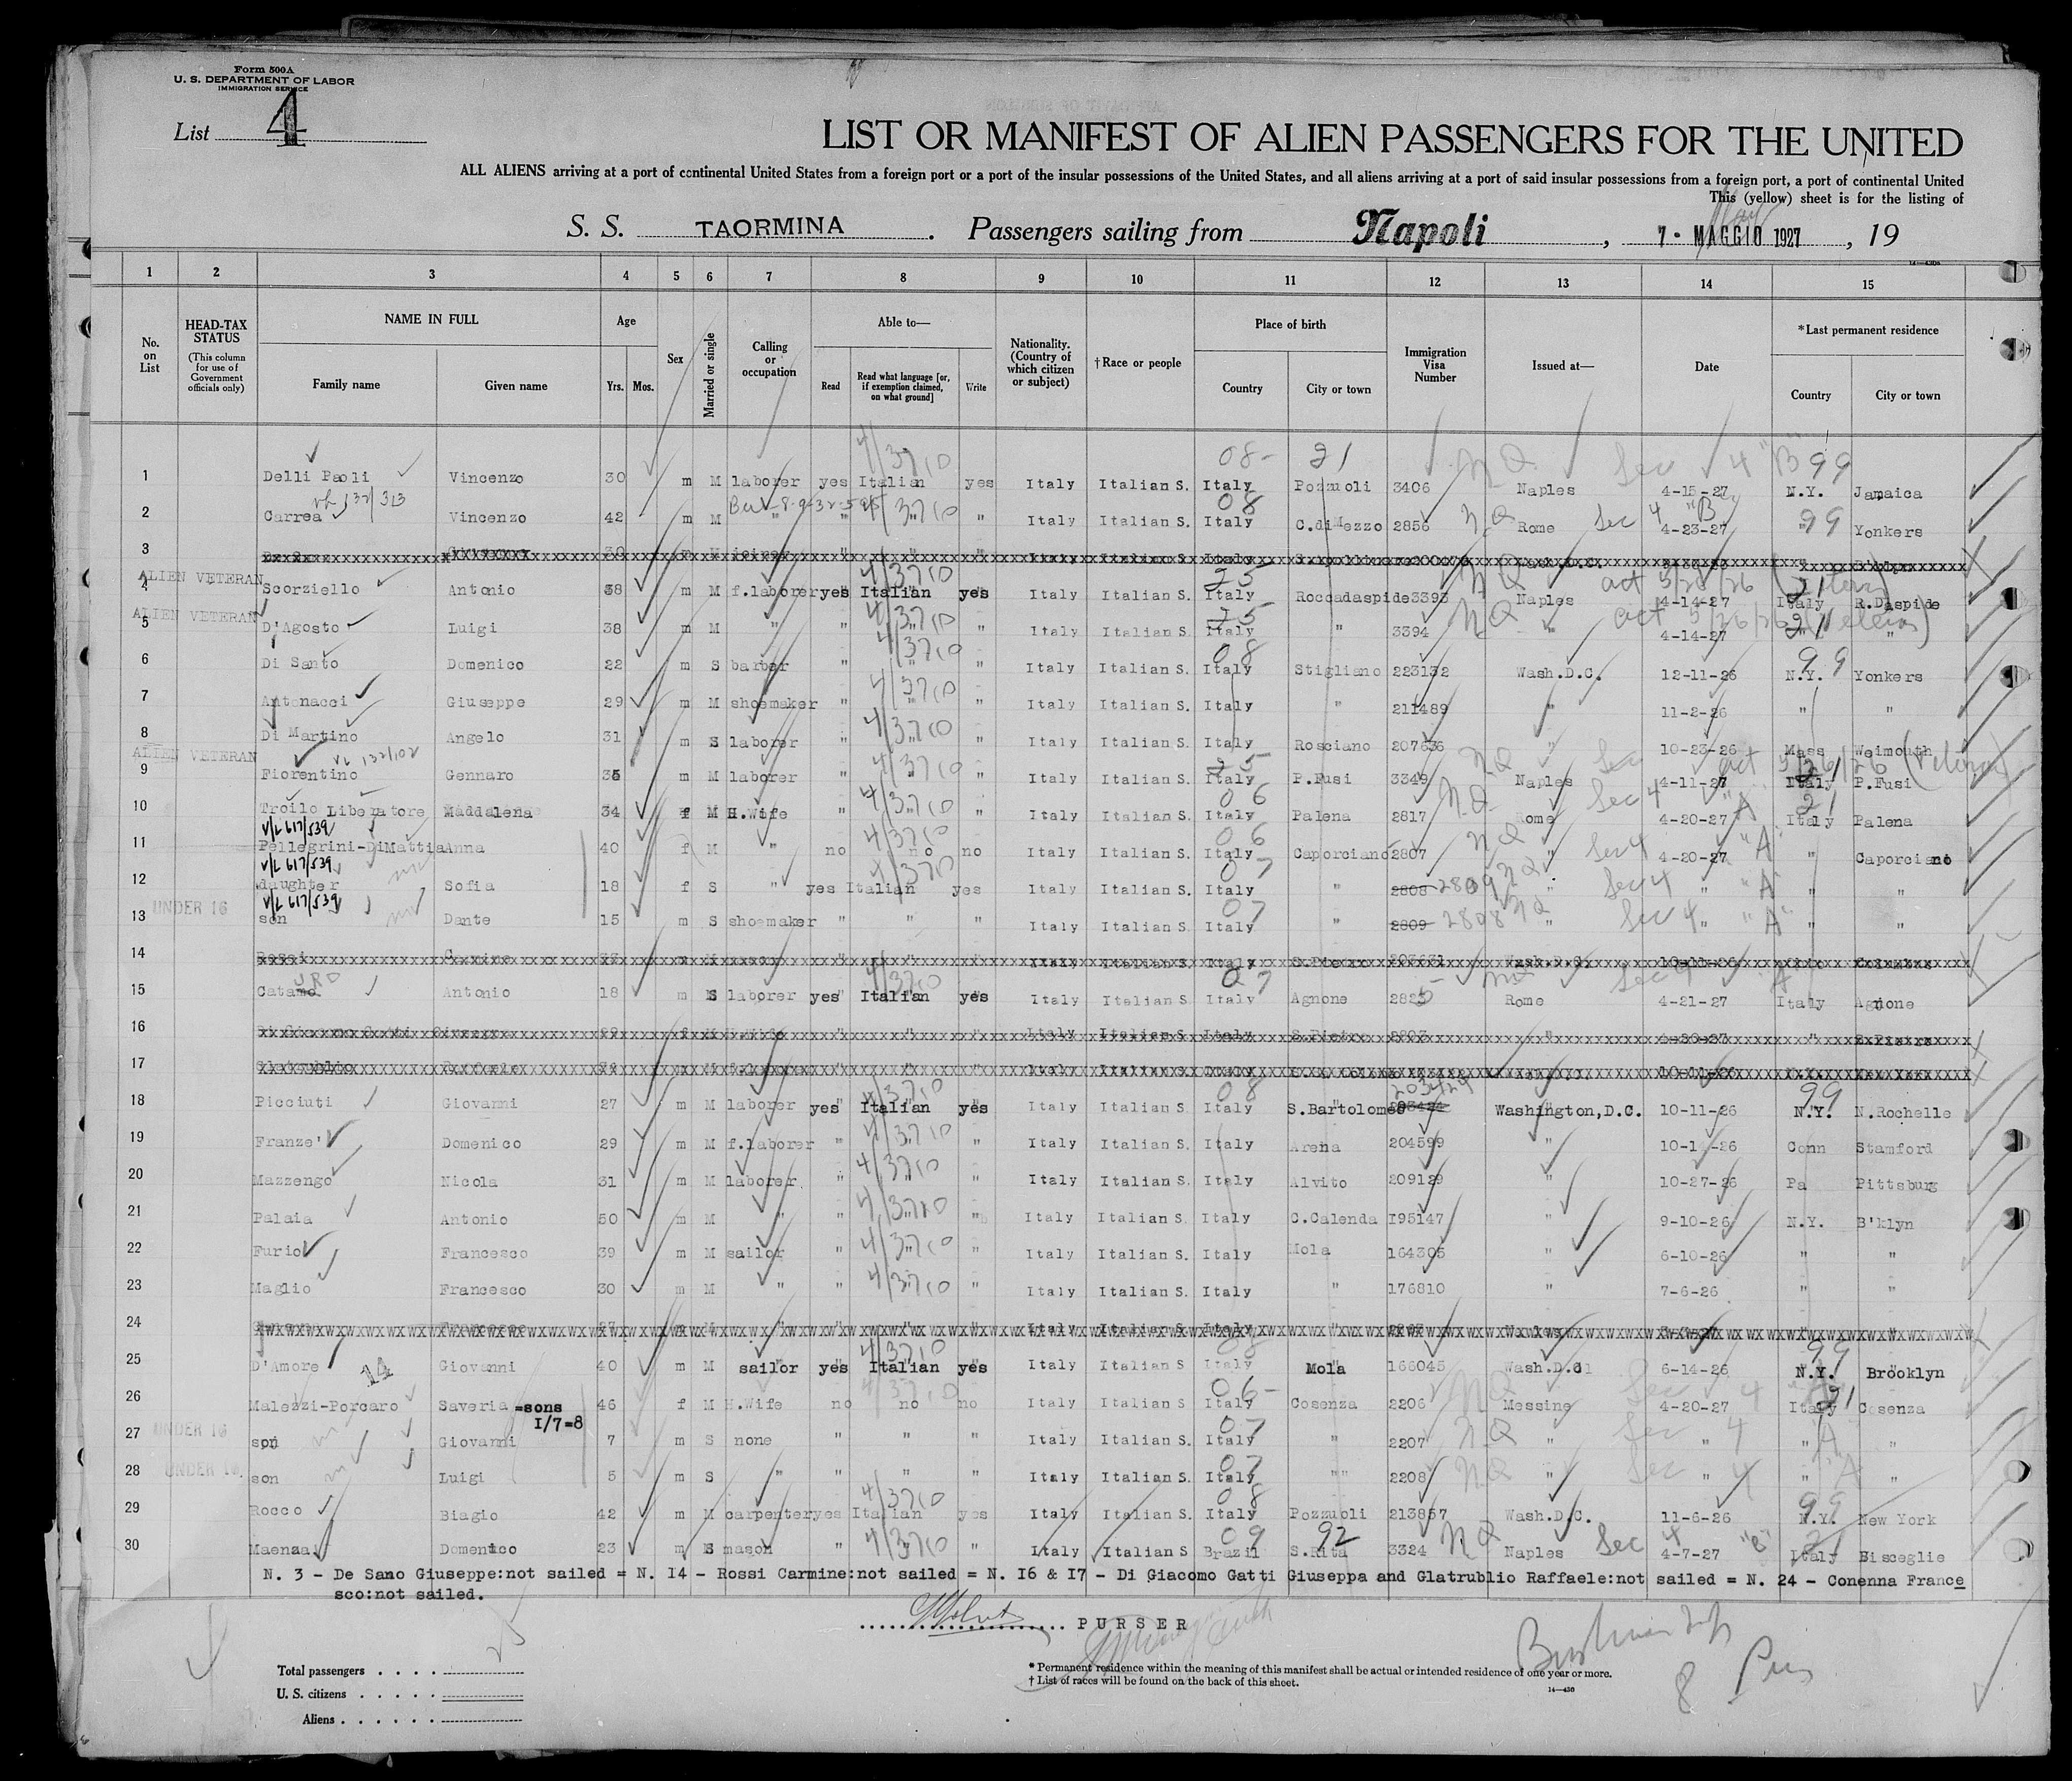 Form 500A
U. S. DEPARTMENT OF LABOR
IMMIGRATION SERVICE
List 4
LIST OR MANIFEST OF ALIEN PASSENGERS FOR THE UNITED
ALL ALIENS arriving at a port of continental United States from a foreign port or a port of the insular possessions of the United States, and all aliens arriving at a port of said insular possessions from a foreign port, a port of continental United
This (yellow) sheet is for the listing of
S. S. TAORMINA . Passengers sailing from Napoli , 7 - MAGGIO 1927 , 19
May
14—430
1 2 3 4 5 6 7 8 9 10 11 12 13 14 15
No. on List
HEAD-TAX STATUS (This column for use of Government officials only)
NAME IN FULL
Family name Given name
Age Yrs. Mos.
Sex
Married or single
Calling or occupation
Able to—
Read Read what language [or, if exemption claimed, on what ground] Write
Nationality. (Country of which citizen or subject)
†Race or people
Place of birth
Country City or town
Immigration Visa Number
Issued at—
Date
*Last permanent residence
Country City or town
4/3710 08- 21 NQ Sec 4 "B" 99
1 Delli Paoli Vincenzo 30 m M laborer yes Italian yes Italy Italian S. Italy Pozzuoli 3406 Naples 4-15-27 N.Y. Jamaica
3710 08 NQ Sec 4 "B" 99
2 Carrea Vincenzo 42 m M " " Italy Italian S. Italy C.diMezzo 2856 Rome 4-23-27 " Yonkers
3
ALIEN VETERAN 4/3710 25 NQ act 5/26/26 21
4 Scorziello Antonio 38 m M f.laborer yes Italian yes Italy Italian S. Italy Roccadaspide 3393 Naples 4-14-27 Italy R.Daspide
ALIEN VETERAN 4/3710 25 NQ act 5/26/26 21
5 D'Agosto Luigi 38 m M " " " " Italy Italian S. Italy " 3394 " 4-14-27 " "
4/3710 08 99
6 Di Santo Domenico 22 m S barber " " " Italy Italian S. Italy Stigliano 223132 Wash.D.C. 12-11-26 N.Y. Yonkers
4/3710
7 Antonacci Giuseppe 29 m M shoemaker " " " Italy Italian S. Italy " 211489 " 11-2-26 " "
4/3710
8 Di Martino Angelo 31 m S laborer " " " Italy Italian S. Italy Rosciano 207636 " 10-23-26 Mass Weimouth
ALIEN VETERAN VL 132/102 4/3710 25 NQ act 5/26/26 21
9 Fiorentino Gennaro 35 m M laborer " " " Italy Italian S. Italy P.Fusi 3349 Naples 4-11-27 Italy P.Fusi
4/3710 06 NQ Sec 4 "A" 21
10 Troilo Liberatore Maddalena 34 f M H.Wife " " " Italy Italian S. Italy Palena 2817 Rome 4-20-27 Italy Palena
V/L 617/539 4/3710 06 NQ Sec 4 "A"
11 Pellegrini-DiMattia Anna 40 f M " no no no Italy Italian S. Italy Caporciano 2807 " 4-20-27 " Caporciano
V/L 617/539 4/3710 07 2809 NQ Sec 4 "A"
12 daughter Sofia 18 f S " yes Italian yes Italy Italian S. Italy " 2808 " " " "
V/L 617/539 UNDER 16 07 2808 NQ Sec 4 "A"
13 son Dante 15 m S shoemaker " " " Italy Italian S. Italy " 2809 " " " "
14
4/3710 07 NQ Sec 4 "A"
15 Catamo Antonio 18 m S laborer yes Italian yes Italy Italian S. Italy Agnone 2825 Rome 4-21-27 Italy Agnone
16
17
4/3710 08 203424 99
18 Picciuti Giovanni 27 m M laborer yes Italian yes Italy Italian S. Italy S.Bartolomeo Washington,D.C. 10-11-26 N.Y. N.Rochelle
4/3710
19 Franze' Domenico 29 m M f.laborer " " Italy Italian S. Italy Arena 204599 " 10-14-26 Conn Stamford
4/3710
20 Mazzengo Nicola 31 m M laborer " " " Italy Italian S. Italy Alvito 209129 " 10-27-26 Pa Pittsburg
4/3710
21 Palaia Antonio 50 m M " " " " Italy Italian S. Italy C.Calenda 195147 " 9-10-26 N.Y. B'klyn
4/3710
22 Furio Francesco 39 m M sailor " " " Italy Italian S. Italy Mola 164305 " 6-10-26 " "
4/3710
23 Maglio Francesco 30 m M " " " " Italy Italian S. Italy " 176810 " 7-6-26 " "
24
14 4/3710 08 99
25 D'Amore Giovanni 40 m M sailor yes Italian yes Italy Italian S Italy Mola 166045 Wash.D.C 6-14-26 N.Y. Brooklyn
4/3710 06- NQ Sec 4 "A" 21
26 Malezzi-Porcaro Saveria =sons I/7=8 46 f M H.Wife no no no Italy Italian S. Italy Cosenza 2206 Messina 4-20-27 Italy Cosenza
UNDER 16 07 NQ Sec 4 "A"
27 son Giovanni 7 m S none " " " Italy Italian S. Italy " 2207 " " " "
UNDER 16 07 NQ Sec 4 "A"
28 son Luigi 5 m S " " " " Italy Italian S. Italy "" 2208 " " " "
4/3710 08 99
29 Rocco Biagio 42 m M carpenter yes Italian yes Italy Italian S. Italy Pozzuoli 213857 Wash.D.C. 11-6-26 N.Y. New York
4/3710 09 92 NQ Sec 4 "B" 21
30 Maenza Domenico 23 m S mason " " " Italy Italian S Brazil S.Rita 3324 Naples 4-7-27 Italy Bisceglie
N. 3 - De Sano Giuseppe:not sailed = N. I4 - Rossi Carmine:not sailed = N. I6 & I7 - Di Giacomo Gatti Giuseppa and Glatrublio Raffaele:not sailed = N. 24 - Conenna France
sco:not sailed.
PURSER
Total passengers
U. S. citizens
Aliens
* Permanent residence within the meaning of this manifest shall be actual or intended residence of one year or more.
† List of races will be found on the back of this sheet.
14—430
8